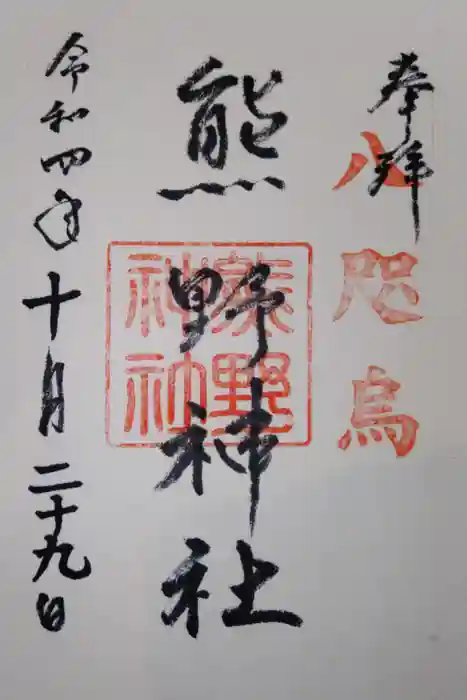 奉拝
八咫烏
熊野神社
熊野
神社
令和四年十月二十九日